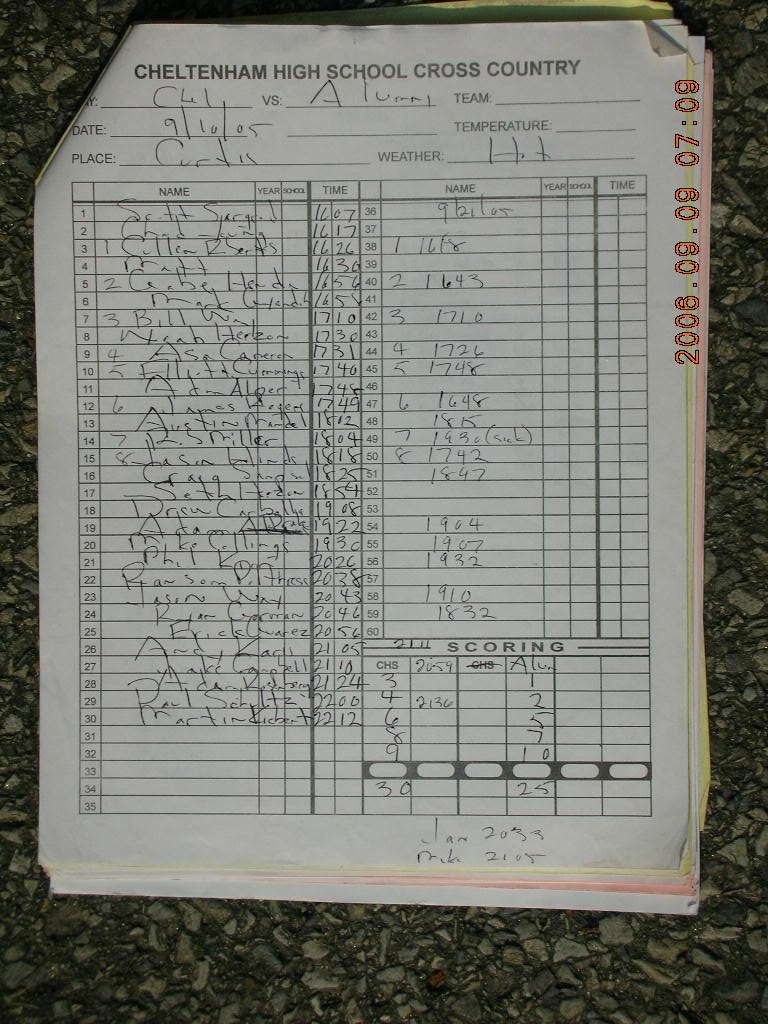 CHELTENHAM HIGH SCHOOL CROSS COUNTRY
Y: Chel VS: Alumni TEAM:
DATE: 9/10/05 TEMPERATURE:
PLACE: Curtis WEATHER: Hot
NAME YEAR SCHOOL TIME NAME YEAR SCHOOL TIME
1 Scott 1607 36 9/21/05
2 1617 37
3 1 Cullen 1626 38 1 1618
4 Matt 1636 39
5 2 Gabe 1656 40 2 1643
6 Mark 165 41
7 3 Bill Way 1710 42 3 1710
8 Noah Herzon 1730 43
9 4 Asa Cameron 1731 44 4 1726
10 5 Elliott Cummings 1740 45 5 1748
11 Adam Alpert 1748 46
12 6 James 1749 47 6 1648
13 Austin Mandel 1802 48 1815
14 7 Miller 1804 49 7 1930 (sick)
15 8 Jason Hinds 1818 50 8 1742
16 Craig 1825 51 1847
17 Seth Herzon 1854 52
18 Drew 1908 53
19 Adam 1922 54 1904
20 Mike Collings 1930 55 1907
21 Phil 2026 56 1932
22 Ransom 2038 57
23 Jason Way 2043 58 1910
24 Ryan Gorman 2046 59 1832
25 Eric Alvarez 2056 60
26 Andy 2105 2111 SCORING
27 Jake Campbell 2110 CHS 2059 CHS Alum
28 Adam 2124 3 1
29 Paul Schultz 2200 4 2136 2
30 Martin 2212 6 5
31 8 7
32 9 10
33
34 30 25
35
Jan 2033
Mike 2105
2006.09.09 07:09